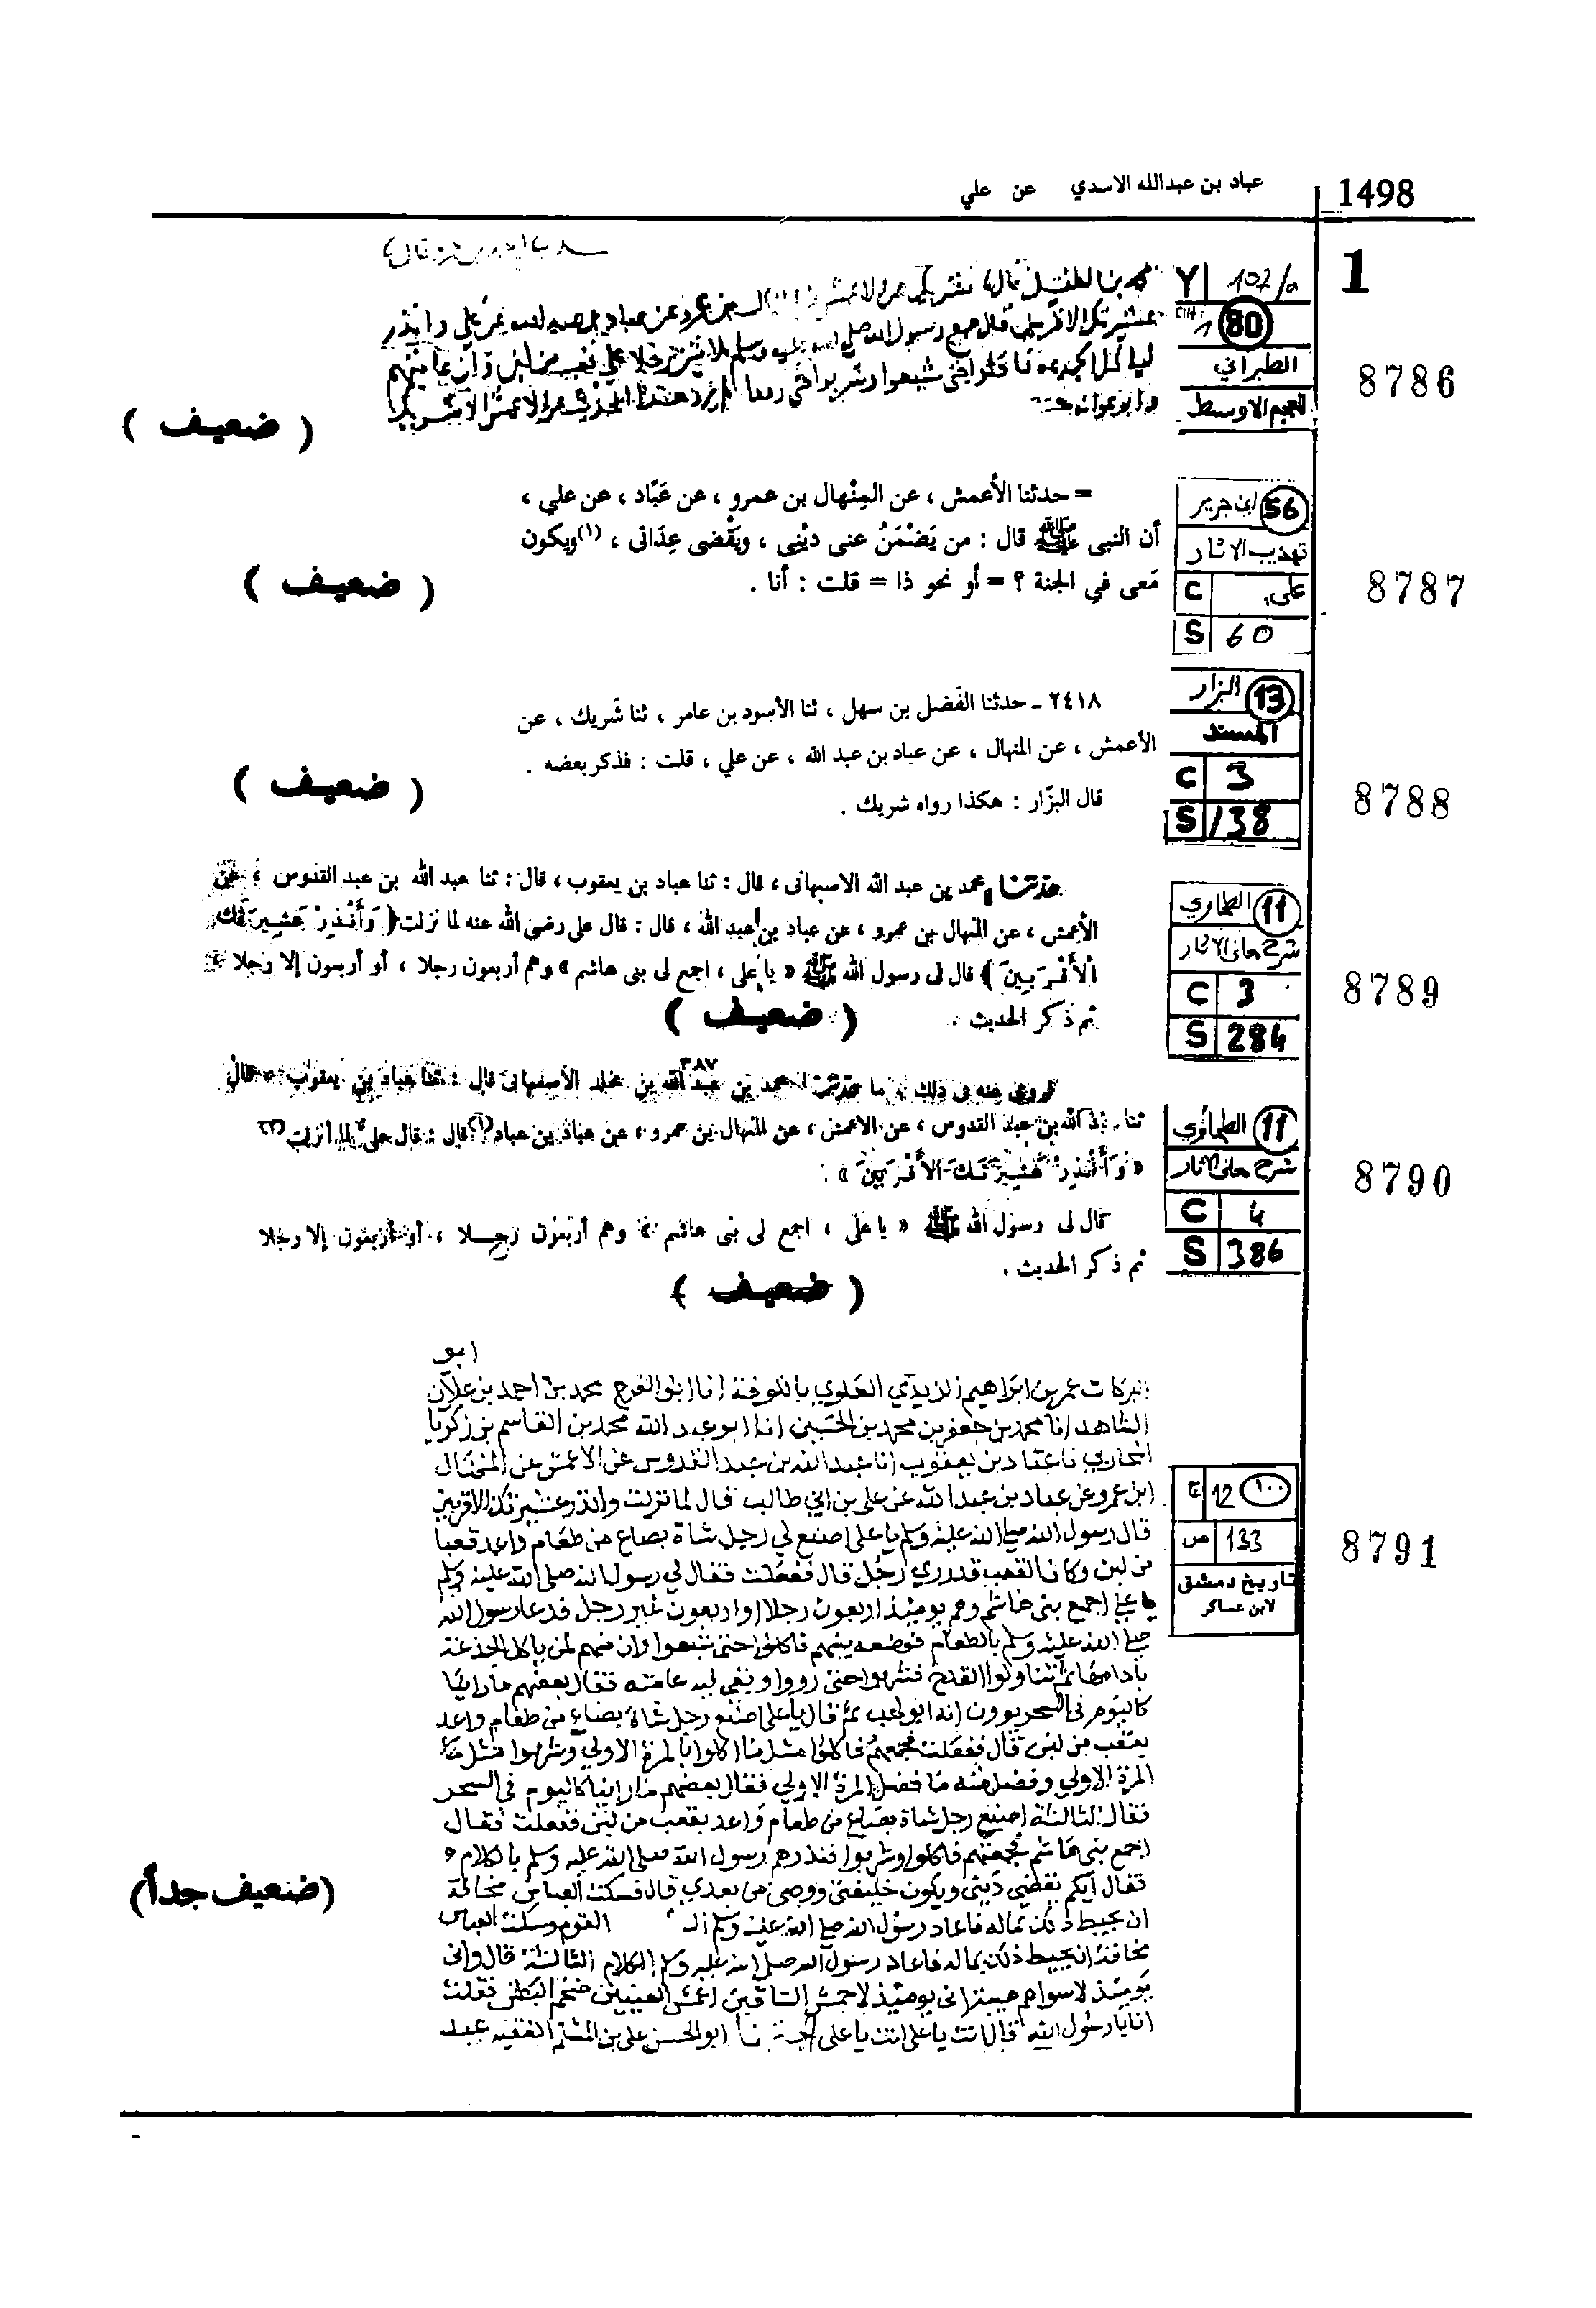 1498 عباد بن عبدالله الاسدي عن علي
1
Y 107/a
80
الطبراني
المعجم الاوسط
8786
بن الطفيل قال
عشيرتك الاقربين قال جمع رسول الله صلى الله عليه وسلم
( ضعيف )
56 ابن جرير
تهذيب الاثار
C علي
S 60
8787
= حدثنا الأعمش ، عن المِنْهال بن عمرو ، عن عَبّاد ، عن علي ،
أن النبى ﷺ قال : من يَضْمَنُ عنى ديْنِى ، ويَقْضى عِدَاتى ، (١) ويكون
مَعى في الجنة ؟ = أو نحو ذا = قلت : أنا .
( ضعيف )
13 البزار
المسند
C 3
S 138
8788
٢٤١٨ ـ حدثنا الفَضل بن سهل ، ثنا الأسود بن عامر ، ثنا شَريك ، عن
الأعمش ، عن المنهال ، عن عباد بن عبد الله ، عن علي ، قلت : فذكر بعضه .
قال البزّار : هكذا رواه شريك .
( ضعيف )
11 الطحاوي
شرح معاني الاثار
C 3
S 284
8789
حدثنا محمد بن عبد الله الاصبهانى ، قال : ثنا عباد بن يعقوب ، قال : ثنا عبد الله بن عبد القدوس ، عن
الأعمش ، عن المنهال بن عمرو ، عن عباد بن عبد الله ، قال : قال على رضى الله عنه لما نزلت ﴿ وَأَنْذِرْ عَشِيرَتَكَ
الْأَقْرَبِينَ ﴾ قال لى رسول الله ﷺ « يا على ، اجمع لى بنى هاشم » وهم أربعون رجلا ، أو أربعون إلا رجلا
ثم ذكر الحديث .
( ضعيف )
11 الطحاوي
شرح معاني الاثار
C 4
S 386
8790
٣٨٧
فروى عنه فى ذلك ، ما حدثنا محمد بن عبد الله بن مخلد الأصفهانى قال : ثنا عباد بن يعقوب ، قال
ثنا عبد الله بن عبد القدوس ، عن الأعمش ، عن المنهال بن عمرو ، عن عباد بن عباد (١) قال : قال على لما أنزلت (٢)
« وَأَنْذِرْ عَشِيرَتَكَ الأَقْرَبِينَ » .
قال لى رسول الله ﷺ « يا على ، اجمع لى بنى هاشم » وهم أربعون رجلا ، أو أربعون إلا رجلا
ثم ذكر الحديث .
( ضعيف )
١٠٠ 12 ج
133 ص
تاريخ دمشق
لابن عساكر
8791
ابو
البركات عمر بن ابراهيم الزيدي العلوي بالكوفة انا ابو الفرج محمد بن احمد بن علان
الشاهد انا محمد بن جعفر بن محمد بن الحسين انا ابو عبد الله محمد بن القاسم بن زكريا
المحاربي نا عباد بن يعقوب انا عبد الله بن عبد القدوس عن الاعمش عن المنهال
ابن عمرو عن عباد بن عبد الله عن علي بن ابي طالب قال لما نزلت وانذر عشيرتك الاقربين
قال رسول الله صلى الله عليه وسلم يا علي اصنع لي رجل شاة بصاع من طعام واعد قعبا
من لبن وكان القعب قدر ري رجل قال ففعلت فقال لي رسول الله صلى الله عليه وسلم
يا علي اجمع بني هاشم وهم يومئذ اربعون رجلا او اربعون غير رجل فدعا رسول الله
صلى الله عليه وسلم بالطعام فوضعه بينهم فاكلوا حتى شبعوا وان منهم لمن ياكل الجذعة
بادامها ثم تناولوا القدح فشربوا حتى رووا وبقي فيه عامته فقال بعضهم ما راينا
كاليوم في السحر يرون انه ابو لهب ثم قال يا علي اصنع رجل شاة بصاع من طعام واعد
بقعب من لبن قال ففعلت فجمعهم فاكلوا مثل ما اكلوا بالمرة الاولي وشربوا مثل
المرة الاولي وفضل منه ما فضل المرة الاولي فقال بعضهم ما راينا كاليوم في السحر
فقال الثالثة اصنع رجل شاة بصاع من طعام واعد بقعب من لبن ففعلت فقال
اجمع بني هاشم فجمعتهم فاكلوا وشربوا فبدرهم رسول الله صلى الله عليه وسلم بالكلام
فقال ايكم يقضي ديني ويكون خليفتي ووصي من بعدي قال فسكت العباس مخافة
ان يحيط ذلك بماله فاعاد رسول الله صلى الله عليه وسلم القوم وسكت العباس
مخافة ان يحيط ذلك بماله فاعاد رسول الله صلى الله عليه وسلم الكلام الثالثة قال واني
يومئذ لاسواهم هيئة اني يومئذ لاحمش الساقين اعمش العينين ضخم البطن فقلت
انا يا رسول الله قال انت يا علي انت يا علي ابو الحسن علي بن المسلم الفقيه عبد
(ضعيف جداً)